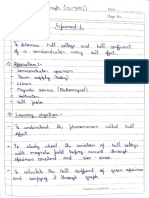 Date
Page No.
Experiment 1
→ To determine hall voltage and hall coefficient
of a semiconductor using hall
effect.
→ Semiconductor specimen
→ Power supply
→ Magnetic source (Electromagnet)
→ Voltmeter
→ Hall probe
Learning objective :-
→ To understand the phenomenon called hall
effect.
→ To study about the variation of hall voltage
with magnetic field current through
specimen
→ To calculate the hall coefficient of given specimen
and verifying it through graph